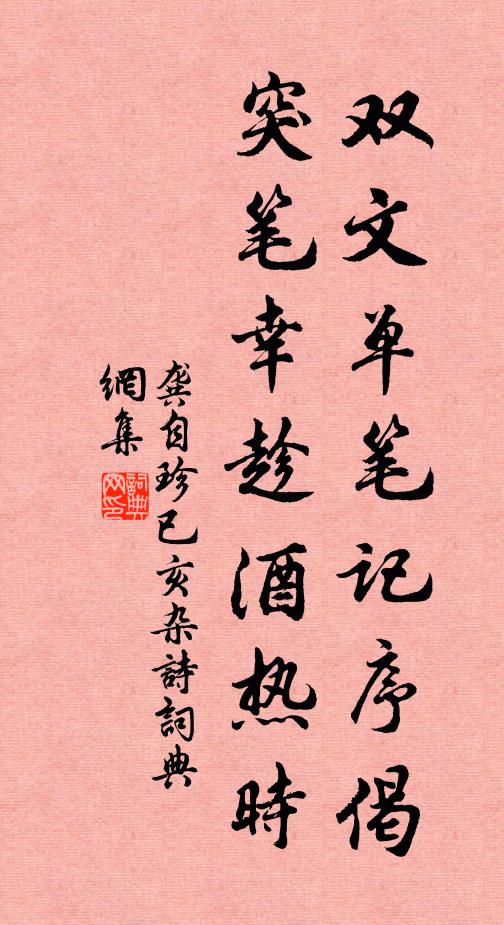 双文单笔记序偈
突笔幸趁酒热時
龚自珍已亥杂詩詞典
網集
詞典网印